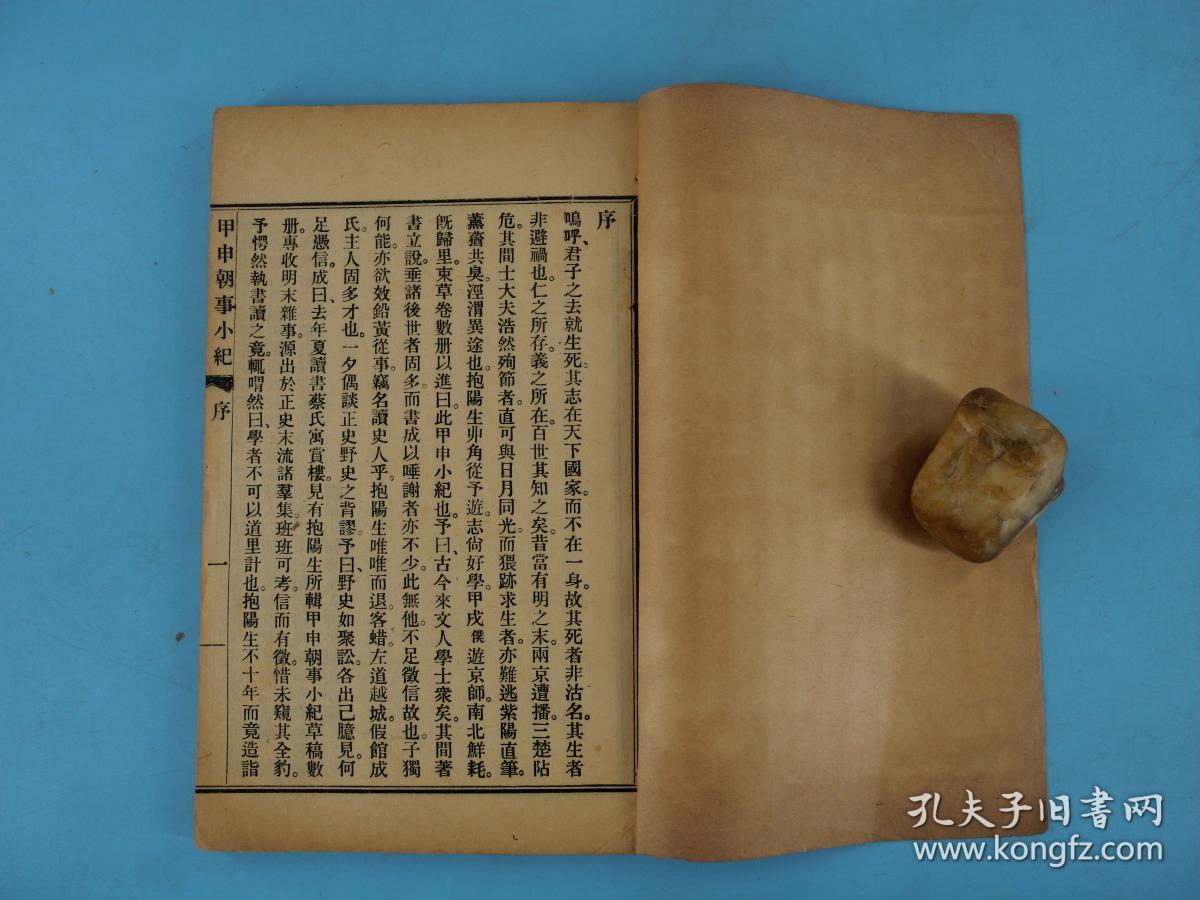 序
嗚呼、君子之去就生死。其志在天下國家。而不在一身。故其死者非沽名。其生者
非避禍也。仁之所存。義之所在。百世其知之矣。昔當有明之末。兩京遭播。三楚阽
危。其間士大夫浩然殉節者。直可與日月同光。而猥跡求生者。亦難逃紫陽直筆。
薰蕕共臭。涇渭異途也。抱陽生丱角從予遊。志尙好學。甲戌僕遊京師。南北鮮耗。
旣歸里。束草卷數册以進。曰此甲申小紀也。予曰、古今來文人學士衆矣。其間著
書立說。垂諸後世者固多。而書成以唾謝者亦不少。此無他。不足徵信故也。子獨
何能。亦欲效鉛黃從事。竊名讀史人乎。抱陽生唯唯而退。客蜡。左道越城。假館成
氏。主人固多才也。一夕偶談正史野史之背謬。予曰、野史如聚訟。各出己臆見。何
足憑信。成曰、去年夏讀書蔡氏寓賞樓。見有抱陽生所輯甲申朝事小紀草稿數
册。專收明末雜事。源出於正史末流諸羣集。班班可考。信而有徵。惜未窺其全豹。
予愕然執書讀之。竟。輒喟然曰、學者不可以道里計也。抱陽生不十年而竟造詣
甲申朝事小紀
序
一
孔夫子旧书网
www.kongfz.com